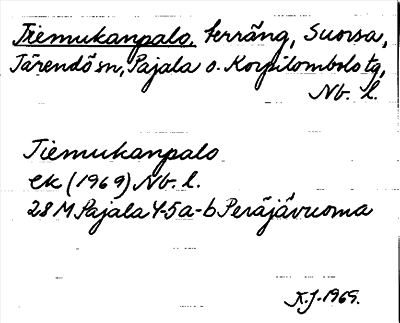 Tiemukanpalo, terräng, Suorsa,
Järendö sn, Pajala o. Korpilombolo tg,
Nb. l.
Tiemukanpalo
ek (1969) Nb. l.
28 M Pajala 4-5 a-b Peräjävuoma
K.J. 1969.